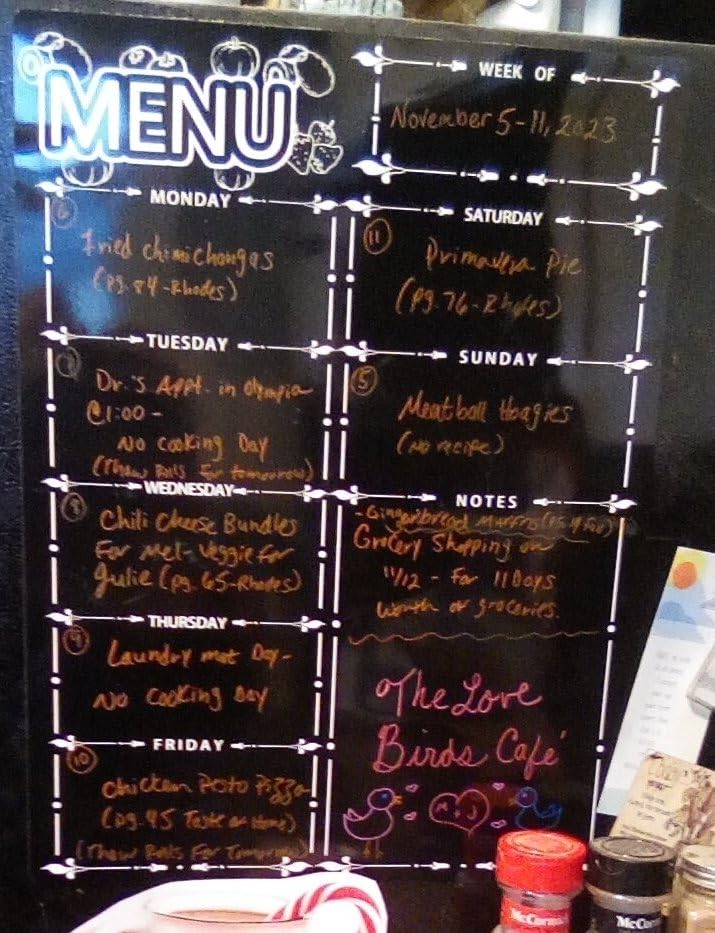 MENU
WEEK OF
November 5-11, 2023
MONDAY
6
Fried Chimichangas
(pg. 84-Rhodes)
TUESDAY
7
Dr.'s Appt. in Olympia
@1:00-
No Cooking Day
(Thaw Rolls For tomorrow)
WEDNESDAY
8
Chili Cheese Bundles
For Mel- Veggie for
Julie (pg. 65-Rhodes)
THURSDAY
9
Laundry mat Day-
No Cooking Day
FRIDAY
10
Chicken Pizza
(pg. 95 Taste of Home)
(Thaw Rolls For Tomorrow)
SATURDAY
11
Primavera Pie
(Pg. 76-Rhodes)
SUNDAY
5
Meatball Hoagies
(No recipe)
NOTES
-Gingerbread Muffins
Grocery Shopping on
11/12 - For 11 Days
worth of groceries.
The Love
Birds Café
M + J
McCormick
McCor